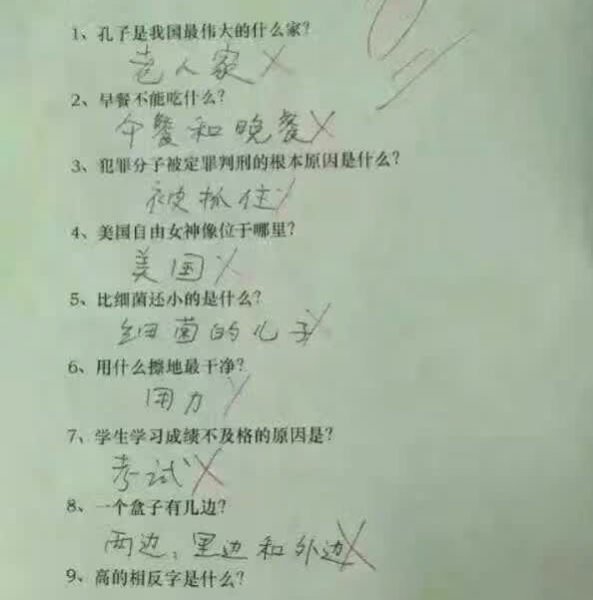 1、孔子是我国最伟大的什么家?
老人家
2、早餐不能吃什么?
午餐和晚餐
3、犯罪分子被定罪判刑的根本原因是什么?
被抓住
4、美国自由女神像位于哪里?
美国
5、比细菌还小的是什么?
细菌的儿子
6、用什么擦地最干净?
用力
7、学生学习成绩不及格的原因是?
考试
8、一个盒子有几边?
两边,里边和外边
9、高的相反字是什么?